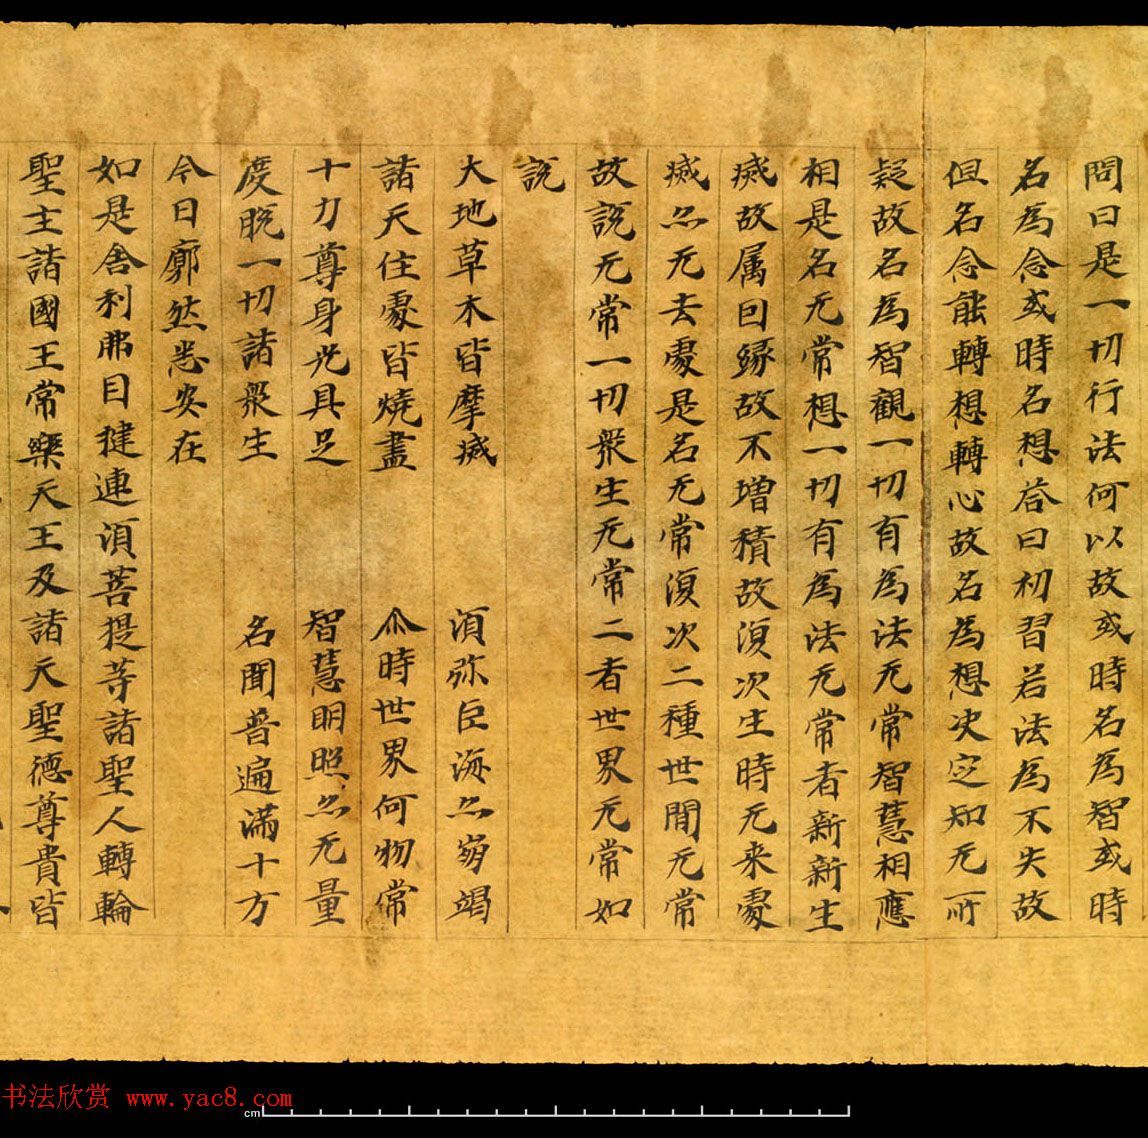 問曰是一切行法何以故或時名為智或時
名為念或時名想答曰初習若法為不失故
但名念能轉想轉心故名為想决定知无所
疑故名為智觀一切有為法无常智慧相應
相是名无常想一切有為法无常者新新生
滅故属因緣故不增積故復次生時无来處
滅亦无去處是名无常復次二種世間无常
故說无常一切衆生无常二者世界无常如
說
大地草木皆摩滅 須弥巨海亦崩竭
諸天住處皆燒盡 尒時世界何物常
十力尊身光具足 智慧明照亦无量
度脫一切諸衆生 名聞普遍滿十方
今日廓然悉安在
如是舍利弗目揵連須菩提等諸聖人轉輪
聖主諸國王常樂天王及諸天聖德尊貴皆
书法欣赏 www.yac8.com
cm